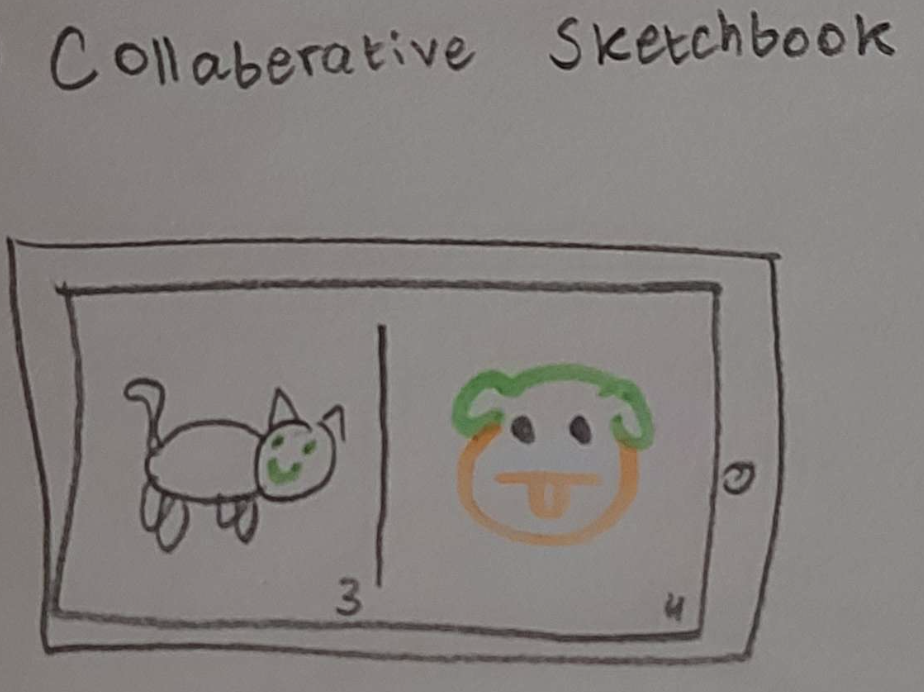 Collaberative Sketchbook
3
4